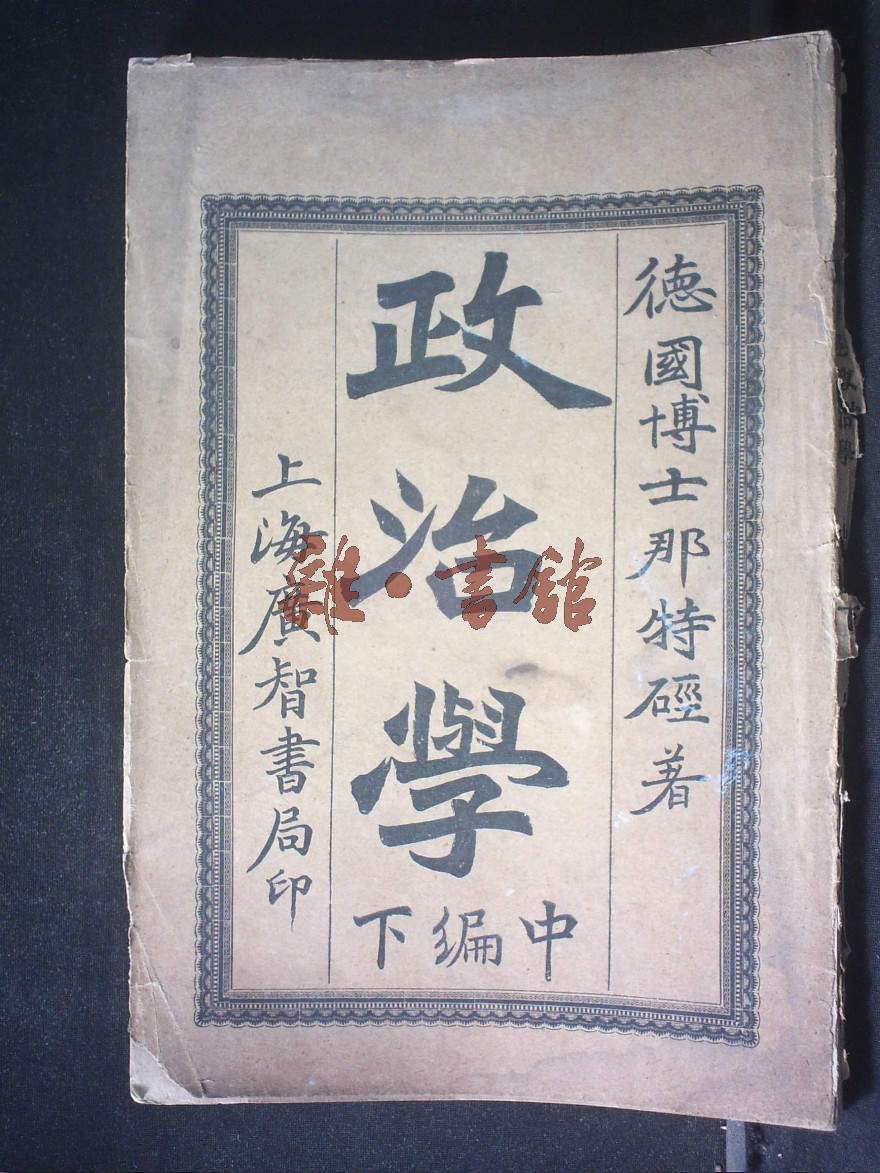 德國博士那特硜著
政治學
中編下
上海廣智書局印
雜·書館